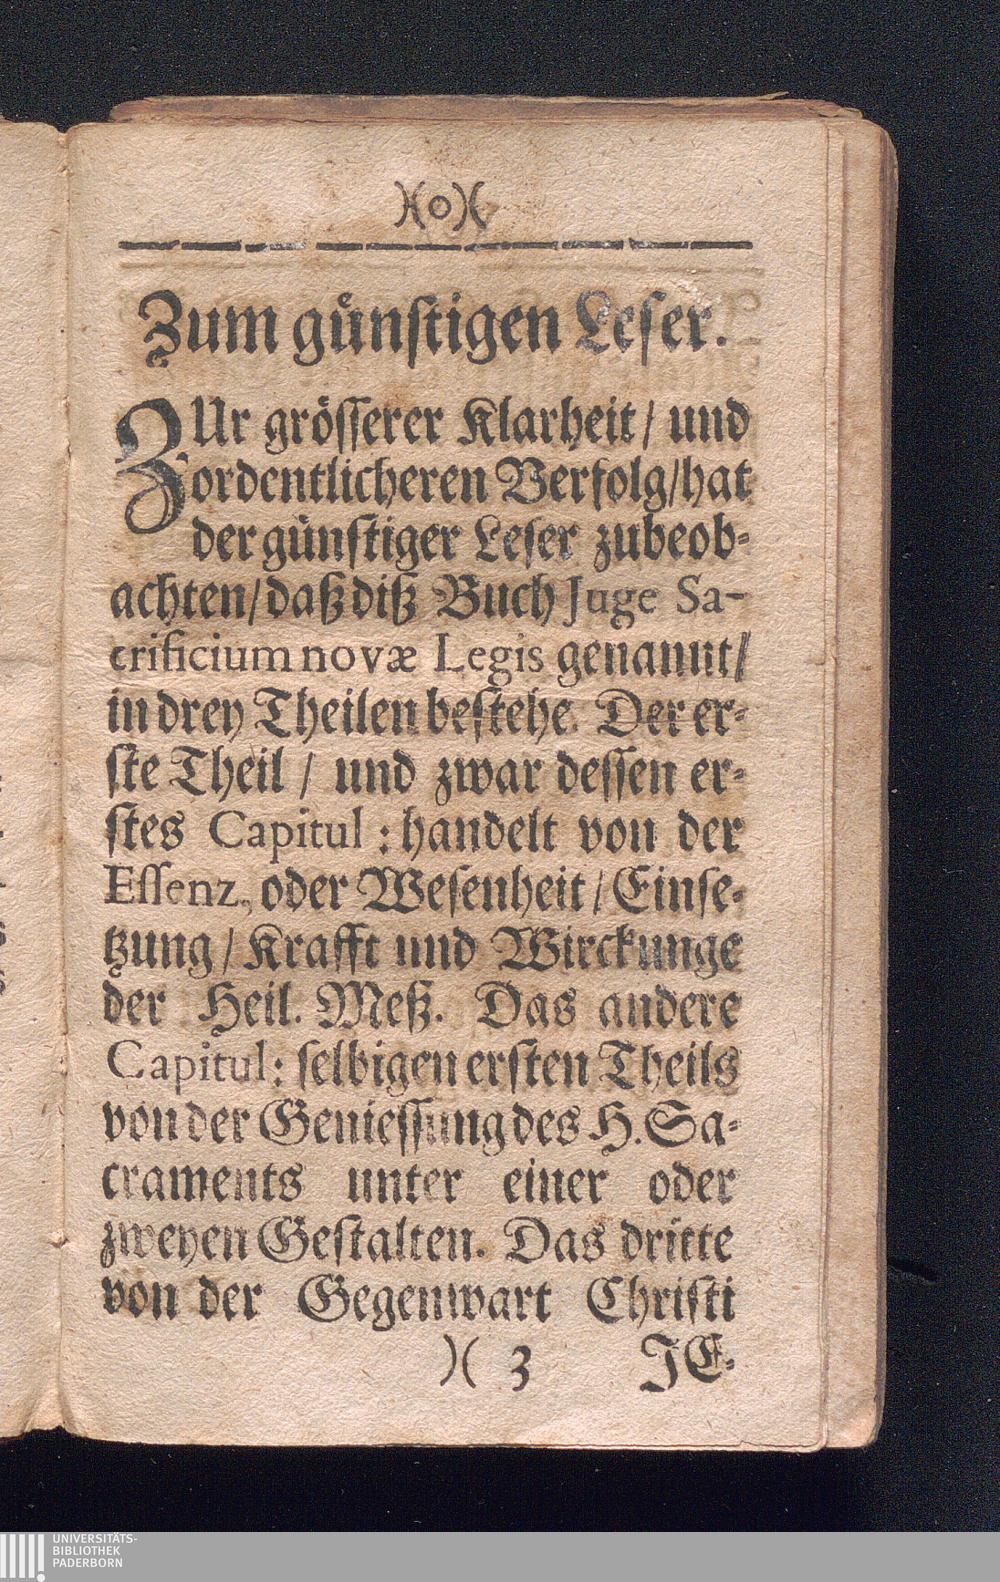 )(o)(
Zum günstigen Leser.
ZUr grösserer Klarheit / und
ordentlicheren Verfolg/hat
der günstiger Leser zubeob-
achten/daß diß Buch Juge Sa-
crificium novæ Legis genannt/
in drey Theilen bestehe. Der er-
ste Theil / und zwar dessen er-
stes Capitul: handelt von der
Essenz, oder Wesenheit / Einse-
tzung / Krafft und Wirckunge
der Heil. Meß. Das andere
Capitul: selbigen ersten Theils
von der Geniessung des H. Sa-
craments unter einer oder
zweyen Gestalten. Das dritte
von der Gegenwart Christi
)( 3 JE-
UNIVERSITÄTS-
BIBLIOTHEK
PADERBORN